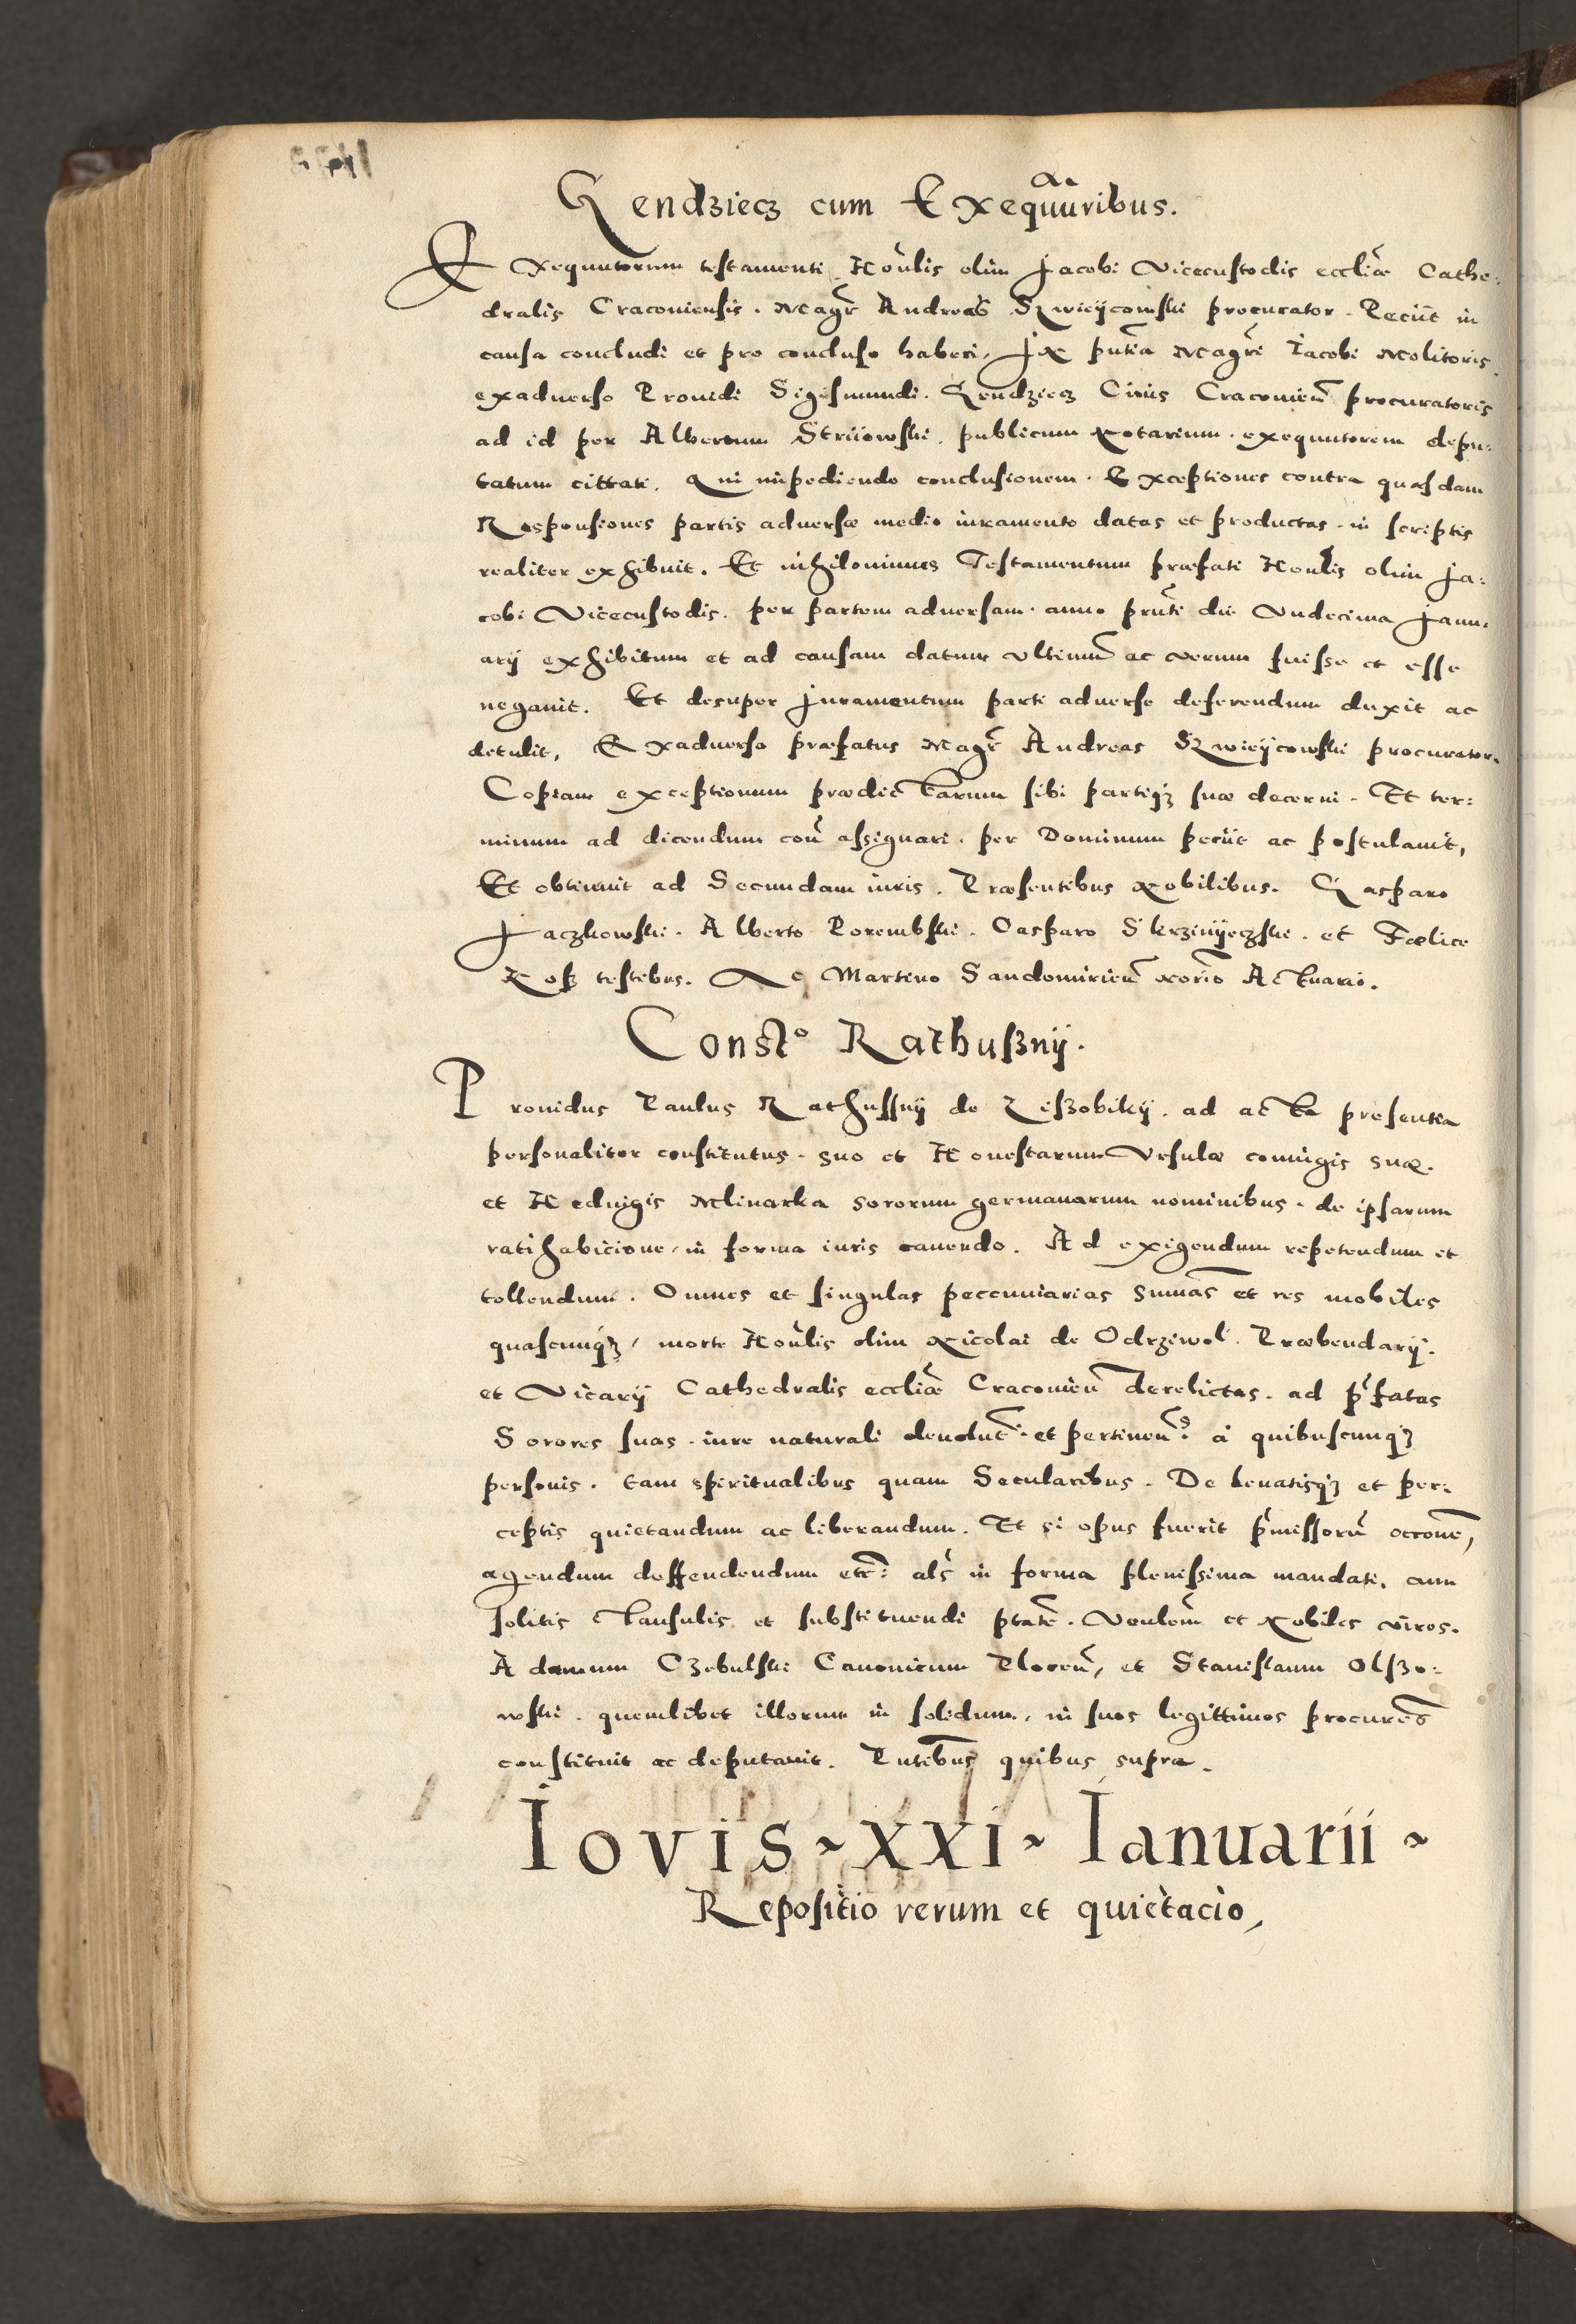 Gendziecz cum Exequutribus.
Exequutorum testamenti Honlis olim Jacobi Vicecustodis eccliæ Cathe:
dralis Craconiensis. Magr Andreas Zwieijcowski procurator. Peciit in
causa concludi et pro concluso haberi, In pntia Magri Jacobi Molitoris
exaduerso Prouidi Sigismundi. Gendziecz Ciuis Cracouien procuratoris
ad id per Albertum Strijowski. publicum Notarium. exequutorem depu:
tatum cittati. Qui impediendo conclusionem. Exceptiones contra quasdam
Responsiones partis aduersæ medio iuramento datas et productas. in scriptis
realiter exhibuit. Et nihilominus Testamentum præfati Honlis olim Ja:
cobi Vicecustodis. per partem aduersam. anno prnti die Vndecima Janu:
arij exhibitum et ad causam datum vltimum ac verum fuisse et esse
negauit. Et desuper Juramentum parti aduerse deferendum duxit ac
detulit, Exaduerso præfatus Magr Andreas Zwieijcowski procurator.
Copiam exceptionum prædictarum sibi partiqz suæ decerni. Et ter:
minum ad dicendum con assignari. per Dominum peciit ac postulauit,
Et obtinuit ad Secundam iuris. Præsentibus Nobilibus. Gasparo
Jaczkowski. Alberto Porembski. Casparo Skrzinijeczski. et Fœlice
Kosz testibus. Ac Martino Sandomirien norio Actuario.
Const° Rathusznij.
Prouidus Paulus Rathussnij de Zıszobikij. ad acta presentia
personaliter constitutus. suo et Honestarum Vrsulæ coniugis suæ.
et Heduigis Mlinarka sororum germanarum nominibus. de ipsarum
ratihabicione, in forma iuris cauendo. Ad exigendum repetendum et
tollendum. Omnes et singulas peccuniarias Sumas et res mobiles
quascunqz, morte Honlis olim Nicolai de Odrziwol. Præbendarij.
et Vicarij Cathedralis eccliæ Cracouien derelictas. ad pfatas
Sorores suas. iure naturali deuolut. et pertinen. à quibuscunqz
personis. tam spiritualibus quam Secularibus. De leuatisqz et per:
ceptis quietandum ac liberandum. Et si opus fuerit pmissoru occone,
agendum deffendendum etc: als in forma plenissima mandati. cum
solitis clausulis et substituendi ptate. Venlem et Nobiles viros.
Adamum Czebulski Canonicum Plocen, et Stanislaum Olszo:
wski. quemlibet illorum in solidum, in suos legittimos procures
constituit ac deputauit. Pntibus quibus supra.
Iovis ~ XXI ~ Ianuarii ~
Repositio rerum et quietacio,